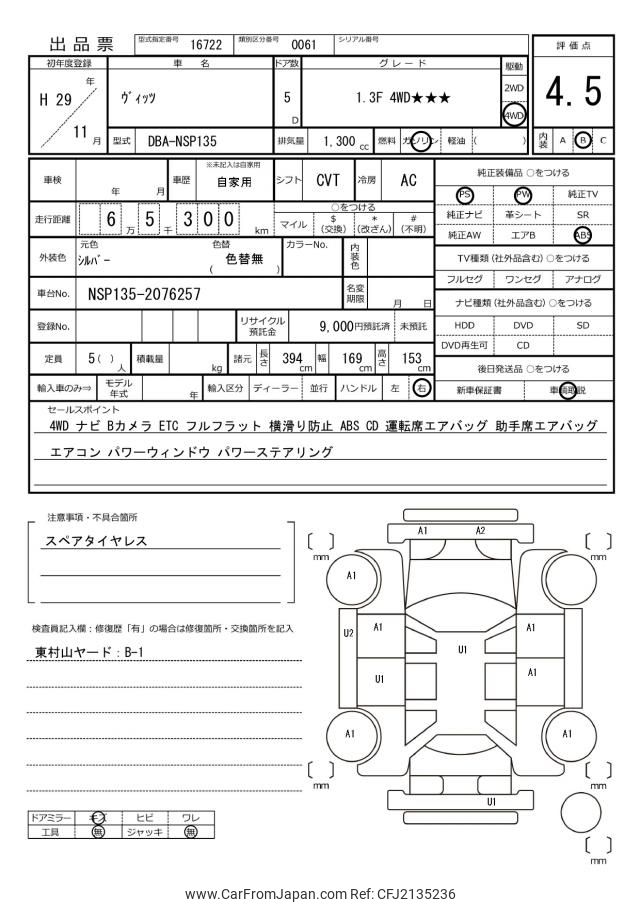 出品票 型式指定番号 16722 類別区分番号 0061 シリアル番号
評価点
4.5
内装 A B C
初年度登録 車名 ドア数 グレード 駆動
H 29 年 ヴィッツ 5 D 1.3F 4WD★★★ 2WD
11 月 4WD
型式 DBA-NSP135 排気量 1,300 cc 燃料 ガソリン 軽油 ( )
車検 年 月 車歴 ※未記入は自家用 自家用 シフト CVT 冷房 AC
走行距離 6 万 5 千 3 0 0 km ○をつける
マイル $ (交換) * (改ざん) # (不明)
外装色 元色 シルバー 色替 ( 色替無 ) カラーNo. 内装色
車台No. NSP135-2076257 名変期限 月 日
登録No. リサイクル預託金 9,000円預託済 未預託
定員 5( ) 人 積載量 kg 諸元 長さ 394 cm 幅 169 cm 高さ 153 cm
輸入車のみ⇒ モデル年式 年 輸入区分 ディーラー 並行 ハンドル 左 右
純正装備品 ○をつける
PS PW 純正TV
純正ナビ 革シート SR
純正AW エアB ABS
TV種類 (社外品含む) ○をつける
フルセグ ワンセグ アナログ
ナビ種類 (社外品含む) ○をつける
HDD DVD SD
DVD再生可 CD
後日発送品 ○をつける
新車保証書 車輌取説
セールスポイント
4WD ナビ Bカメラ ETC フルフラット 横滑り防止 ABS CD 運転席エアバッグ 助手席エアバッグ
エアコン パワーウィンドウ パワーステアリング
注意事項・不具合箇所
スペアタイヤレス
検査員記入欄：修復歴「有」の場合は修復箇所・交換箇所を記入
東村山ヤード：B-1
ドアミラー キズ ヒビ ワレ
工具 無 ジャッキ 無
A1 A2
mm mm
A1
U2 A1 U1 A1
U1 A1
A1 A1
mm mm
U1
mm
www.CarFromJapan.com Ref: CFJ2135236